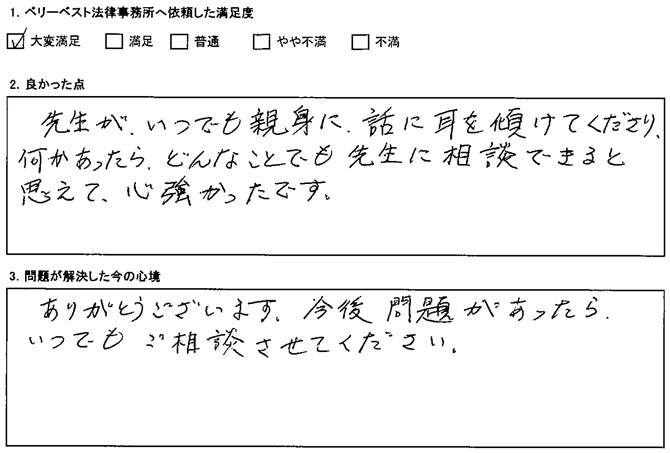 1. ベリーベスト法律事務所へ依頼した満足度
☑ 大変満足 □ 満足 □ 普通 □ やや不満 □ 不満
2. 良かった点
先生が、いつでも親身に、話に耳を傾けてくださり、
何かあったら、どんなことでも先生に相談できると
思えて、心強かったです。
3. 問題が解決した今の心境
ありがとうございます。今後問題があったら、
いつでもご相談させてください。